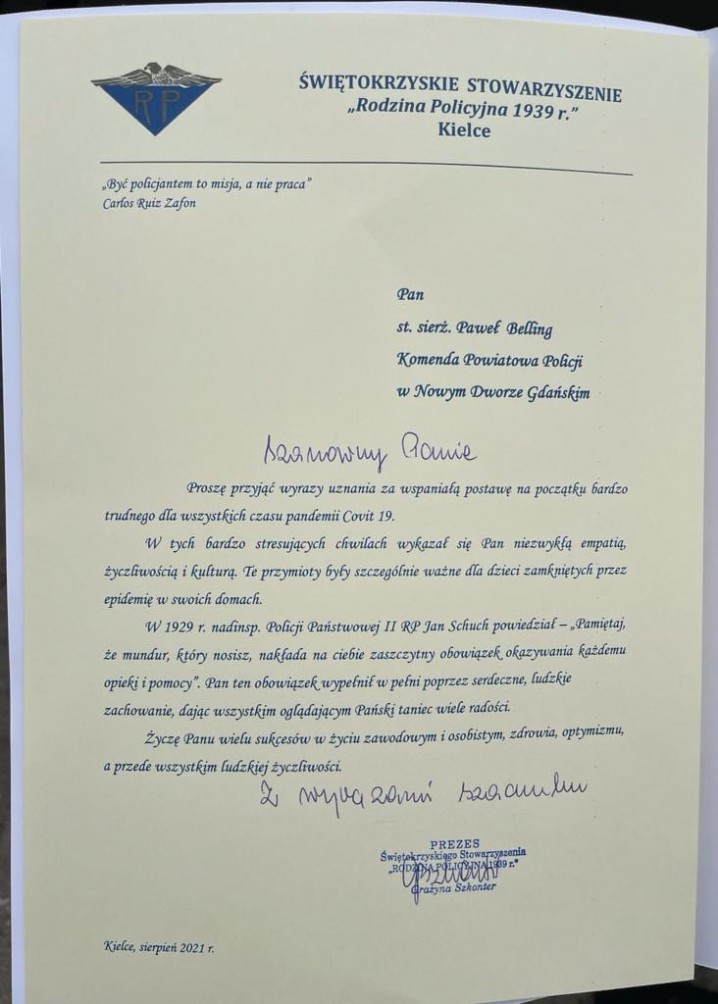 RP
ŚWIĘTOKRZYSKIE STOWARZYSZENIE
„Rodzina Policyjna 1939 r.”
Kielce
„Być policjantem to misja, a nie praca”
Carlos Ruiz Zafon
Pan
st. sierż. Paweł Belling
Komenda Powiatowa Policji
w Nowym Dworze Gdańskim
Szanowny Panie
Proszę przyjąć wyrazy uznania za wspaniałą postawę na początku bardzo
trudnego dla wszystkich czasu pandemii Covit 19.
W tych bardzo stresujących chwilach wykazał się Pan niezwykłą empatią,
życzliwością i kulturą. Te przymioty były szczególnie ważne dla dzieci zamkniętych przez
epidemię w swoich domach.
W 1929 r. nadinsp. Policji Państwowej II RP Jan Schuch powiedział – „Pamiętaj,
że mundur, który nosisz, nakłada na ciebie zaszczytny obowiązek okazywania każdemu
opieki i pomocy”. Pan ten obowiązek wypełnił w pełni poprzez serdeczne, ludzkie
zachowanie, dając wszystkim oglądającym Pański taniec wiele radości.
Życzę Panu wielu sukcesów w życiu zawodowym i osobistym, zdrowia, optymizmu,
a przede wszystkim ludzkiej życzliwości.
Z wyrazami szacunku
PREZES
Świętokrzyskiego Stowarzyszenia
„RODZINA POLICYJNA 1939 r.”
Grażyna Szkonter
Kielce, sierpień 2021 r.